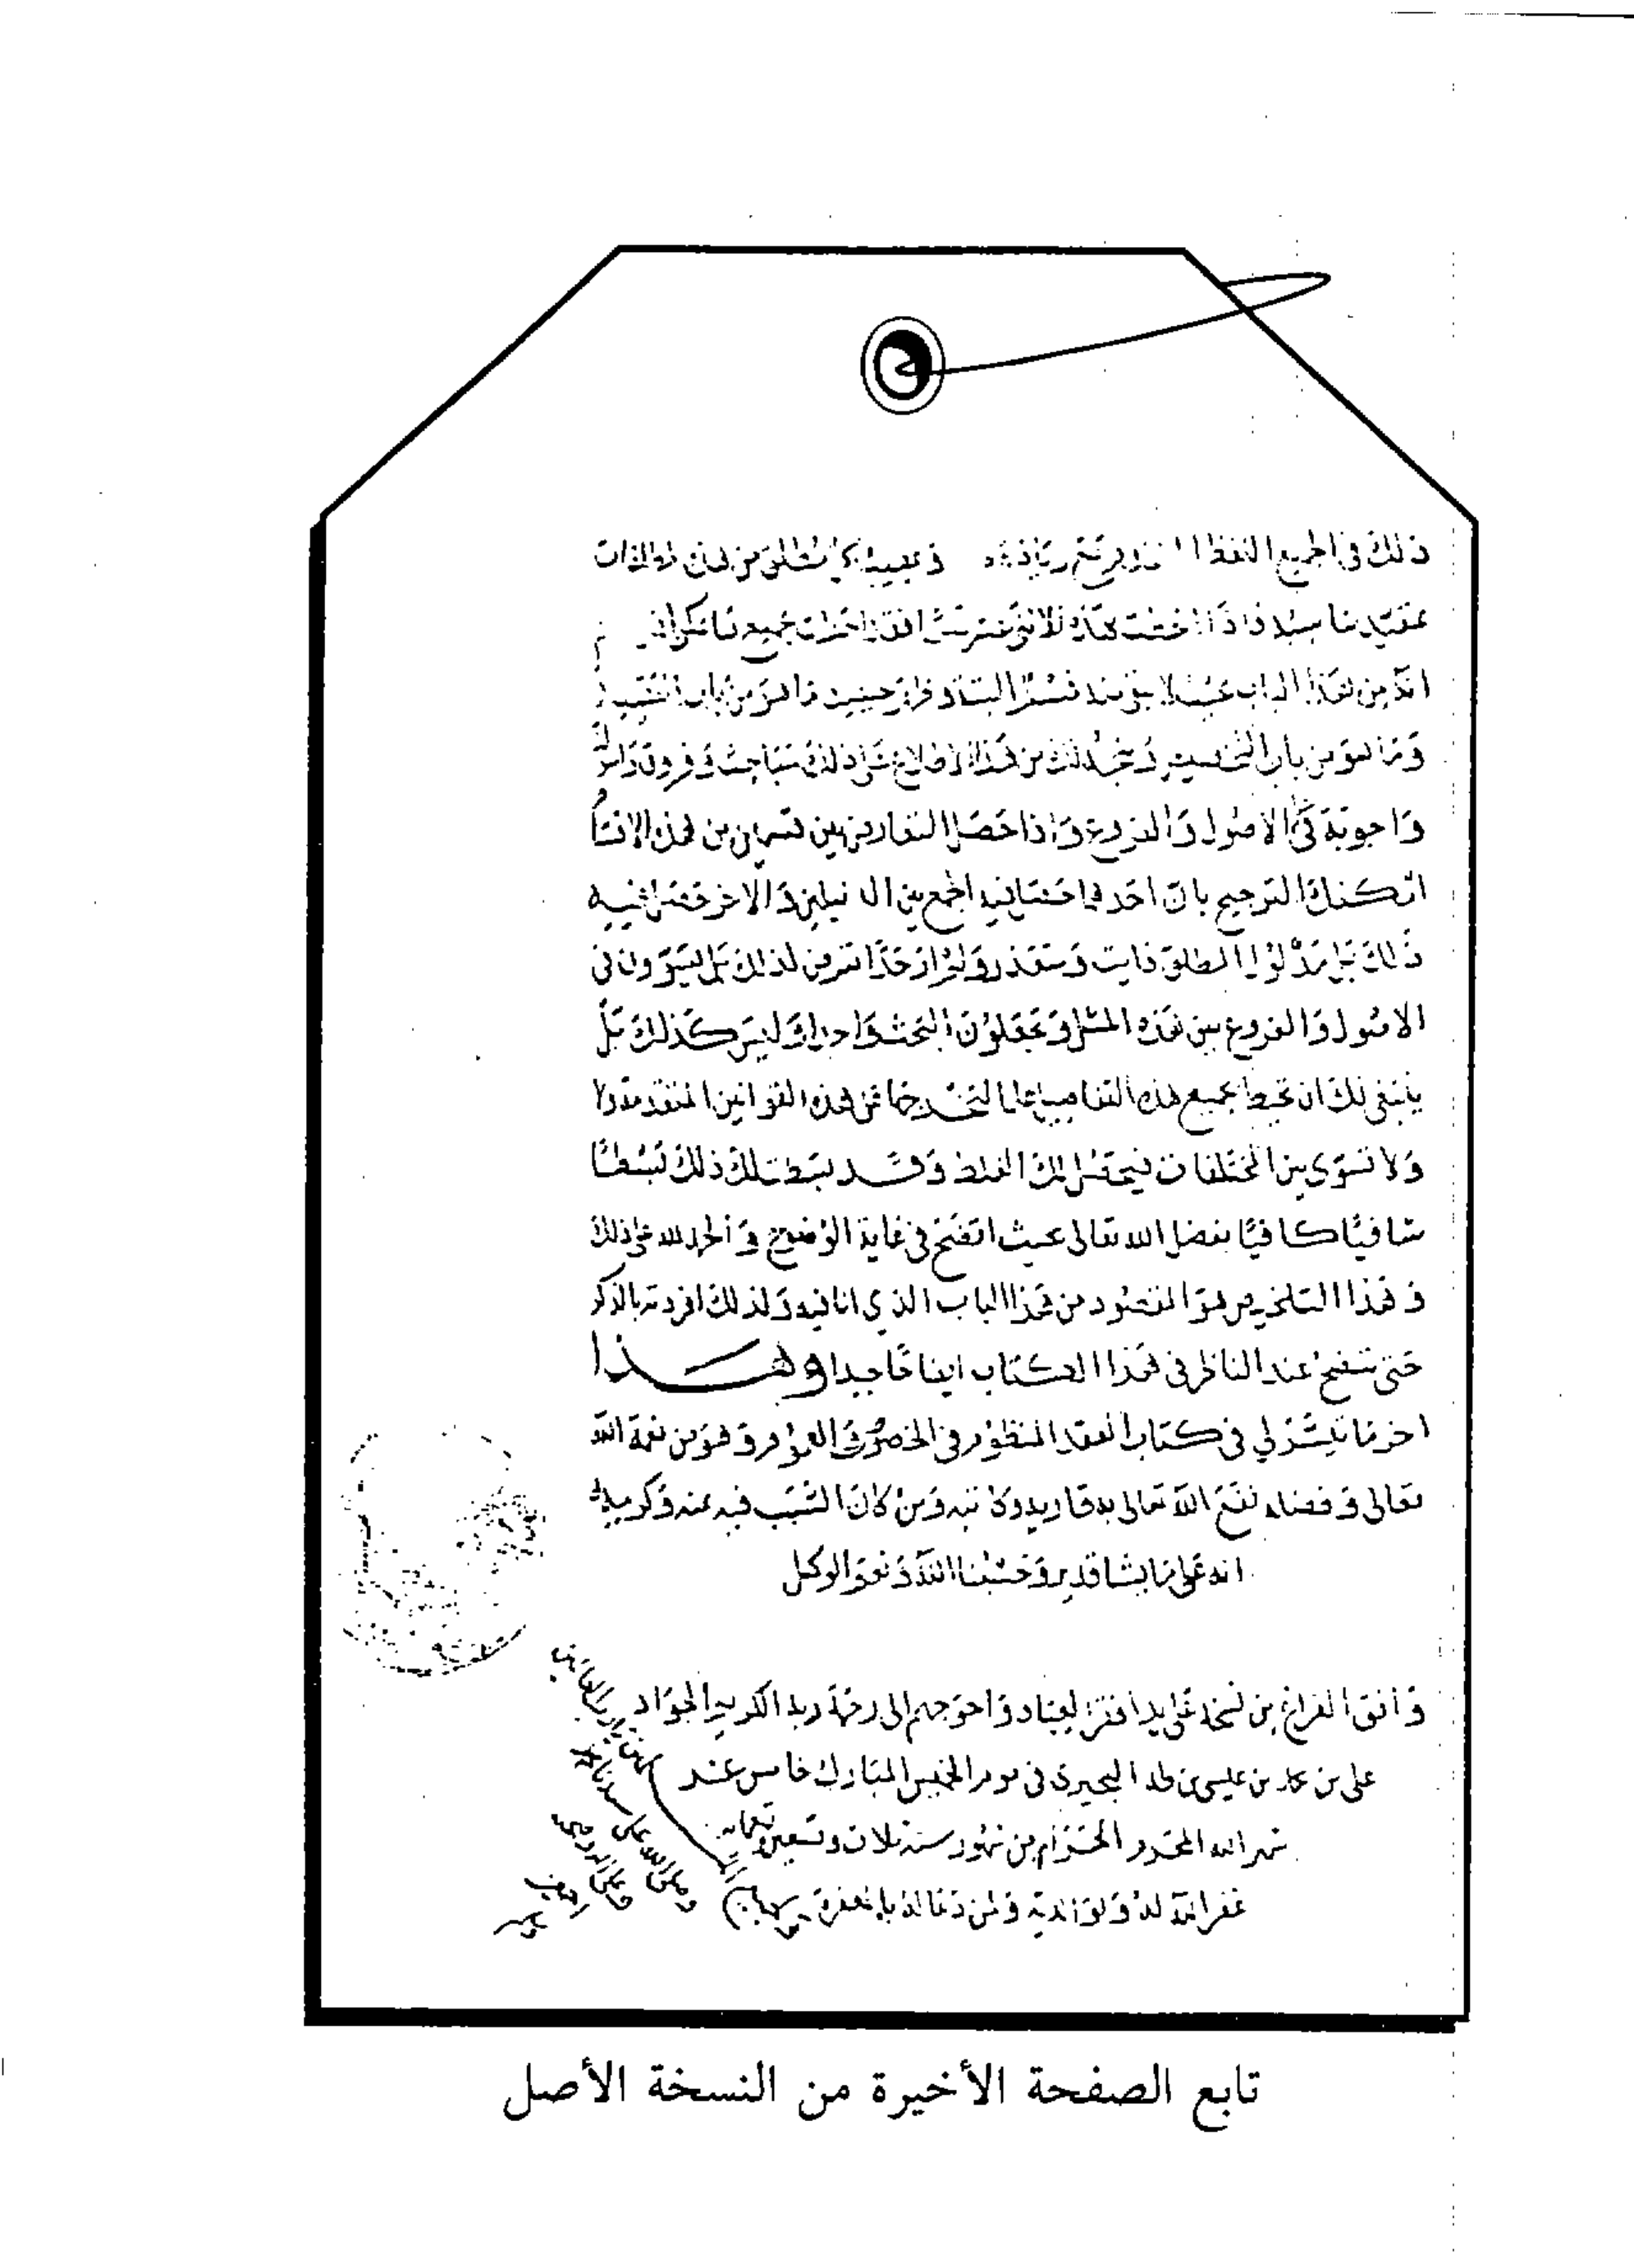 ذلك في الجميع اللفظ
اخذت هذه الاثني عشر جميع
ان من هذا الباب بحيث لا يبقى منه قسم البتة وظهر حينئذ ما هو من باب
وما هو من باب التخصيص من هذا الاطلاع على ذلك مباحث وفروق
واجوبة في الاصول والفروع واذا حصل التعارض بين قسمين من هذه الاقسام
امكنك الترجيح بان احدهما حصل فيه الجمع بين الدليلين والاخر فيه
ذلك بل مدلول المطلق فايت ومتعذر ولم ار احدا تعرض لذلك بل يسوون في
الاصول والفروع بين هذه المثل ويجعلون البحث واحدا وليس كذلك بل
ينبغي لك ان تحيط بجميع هذه التفاصيل علما لتخرجها على هذه القوانين المتقدمة
ولا تسوي بين المختلفات فيحصل لك الغلط وقد بسطت لك ذلك بسطا
شافيا كافيا بفضل الله تعالى بحيث اتضح في غاية الوضوح والحمد لله على ذلك
وهذا التلخيص هو المقصود من هذا الباب الذي انا فيه ولذلك افردته بالذكر
حتى يتضح عند الناظر في هذا الكتاب ايضاحا جيدا وهذا
اخر ما تيسر لي في كتاب العقد المنظوم في الخصوص والعموم وهو من نعمة الله
تعالى وفضله نفع الله تعالى به قاريه وكاتبه ومن كان السبب فيه بمنه وكرمه
انه على ما يشا قدير وحسبنا الله ونعم الوكيل
وافق الفراغ من نسخه على يد افقر العباد واحوجهم الى رحمة ربه الكريم الجواد
على بن محمد بن عيسى بن طه البحيري في يوم الخميس المبارك خامس عشر
شهر الله المحرم الحرام من شهور سنة ثلاث وتسعين وثمانمائة
غفر الله له ولوالديه ولمن دعا له بالمغفرة
امين
رب العالمين
وصلى الله على سيدنا محمد
وعلى اله وصحبه
اجمعين
تابع الصفحة الأخيرة من النسخة الأصل